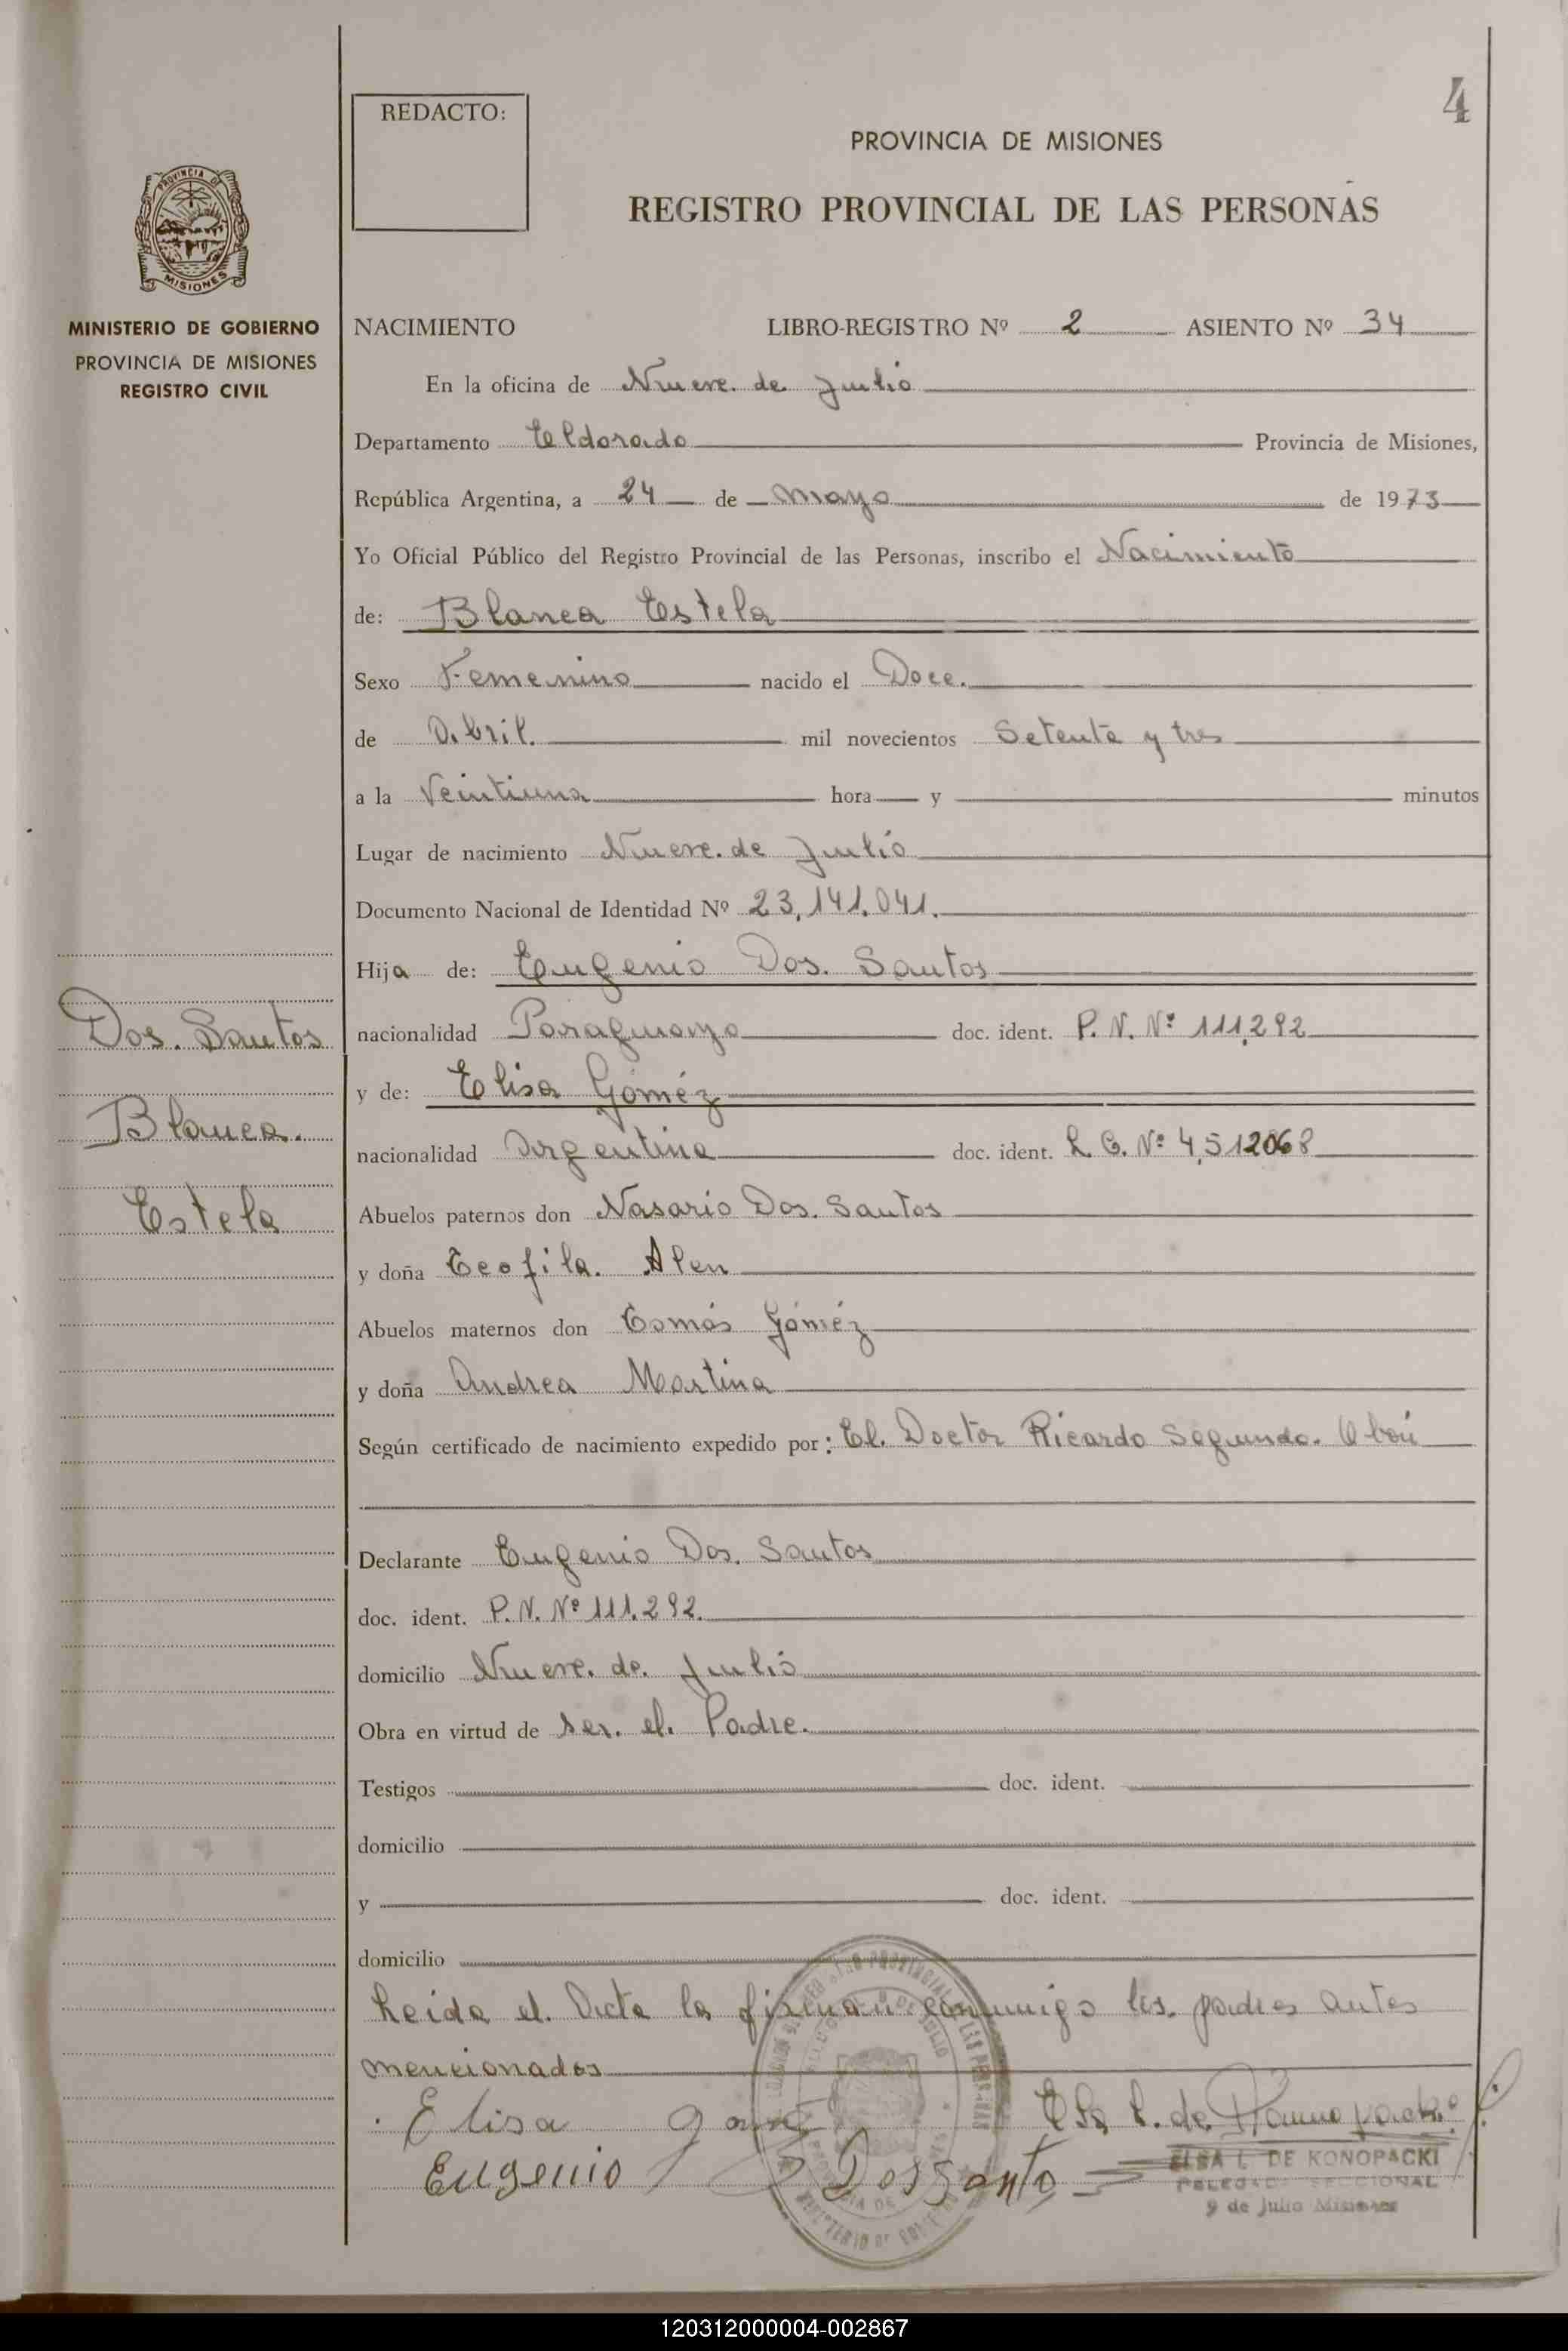 4
REDACTO:
PROVINCIA DE MISIONES
REGISTRO PROVINCIAL DE LAS PERSONAS
PROVINCIA DE
MISIONES
MINISTERIO DE GOBIERNO
PROVINCIA DE MISIONES
REGISTRO CIVIL
NACIMIENTO LIBRO-REGISTRO Nº 2 ASIENTO Nº 34
En la oficina de Nueve. de Julio
Departamento Eldorado Provincia de Misiones,
República Argentina, a 24 de Mayo de 1973
Yo Oficial Público del Registro Provincial de las Personas, inscribo el Nacimiento
de: Blanca Estela
Sexo Femenino nacido el Doce.
de Abril. mil novecientos Setenta y tres
a la Veintiuna hora y minutos
Lugar de nacimiento Nueve. de Julio
Documento Nacional de Identidad Nº 23.141.041.
Hija de: Eugenio Dos. Santos
Dos. Santos
nacionalidad Paraguayo doc. ident. P. N. Nº 111.292
y de: Elisa Goméz
Blanca.
nacionalidad Argentina doc. ident. L. C. Nº 4.512068
Estela
Abuelos paternos don Nasario Dos. Santos
y doña Teofila. Alen
Abuelos maternos don Tomás Goméz
y doña Andrea Martina
Según certificado de nacimiento expedido por: El. Doctor Ricardo Segundo.
Declarante Eugenio Dos. Santos
doc. ident. P. N. Nº 111.292.
domicilio Nueve. de. Julio
Obra en virtud de ser. el. Padre.
Testigos doc. ident.
domicilio
y doc. ident.
domicilio
Leida el. Acta la firman conmigo los. padres antes
mencionados
Elisa Gomez
Elsa L. de Konopacki
Eugenio Dos Santo
ELSA L. DE KONOPACKI
DELEGADA SECCIONAL
9 de Julio Misiones
120312000004-002867